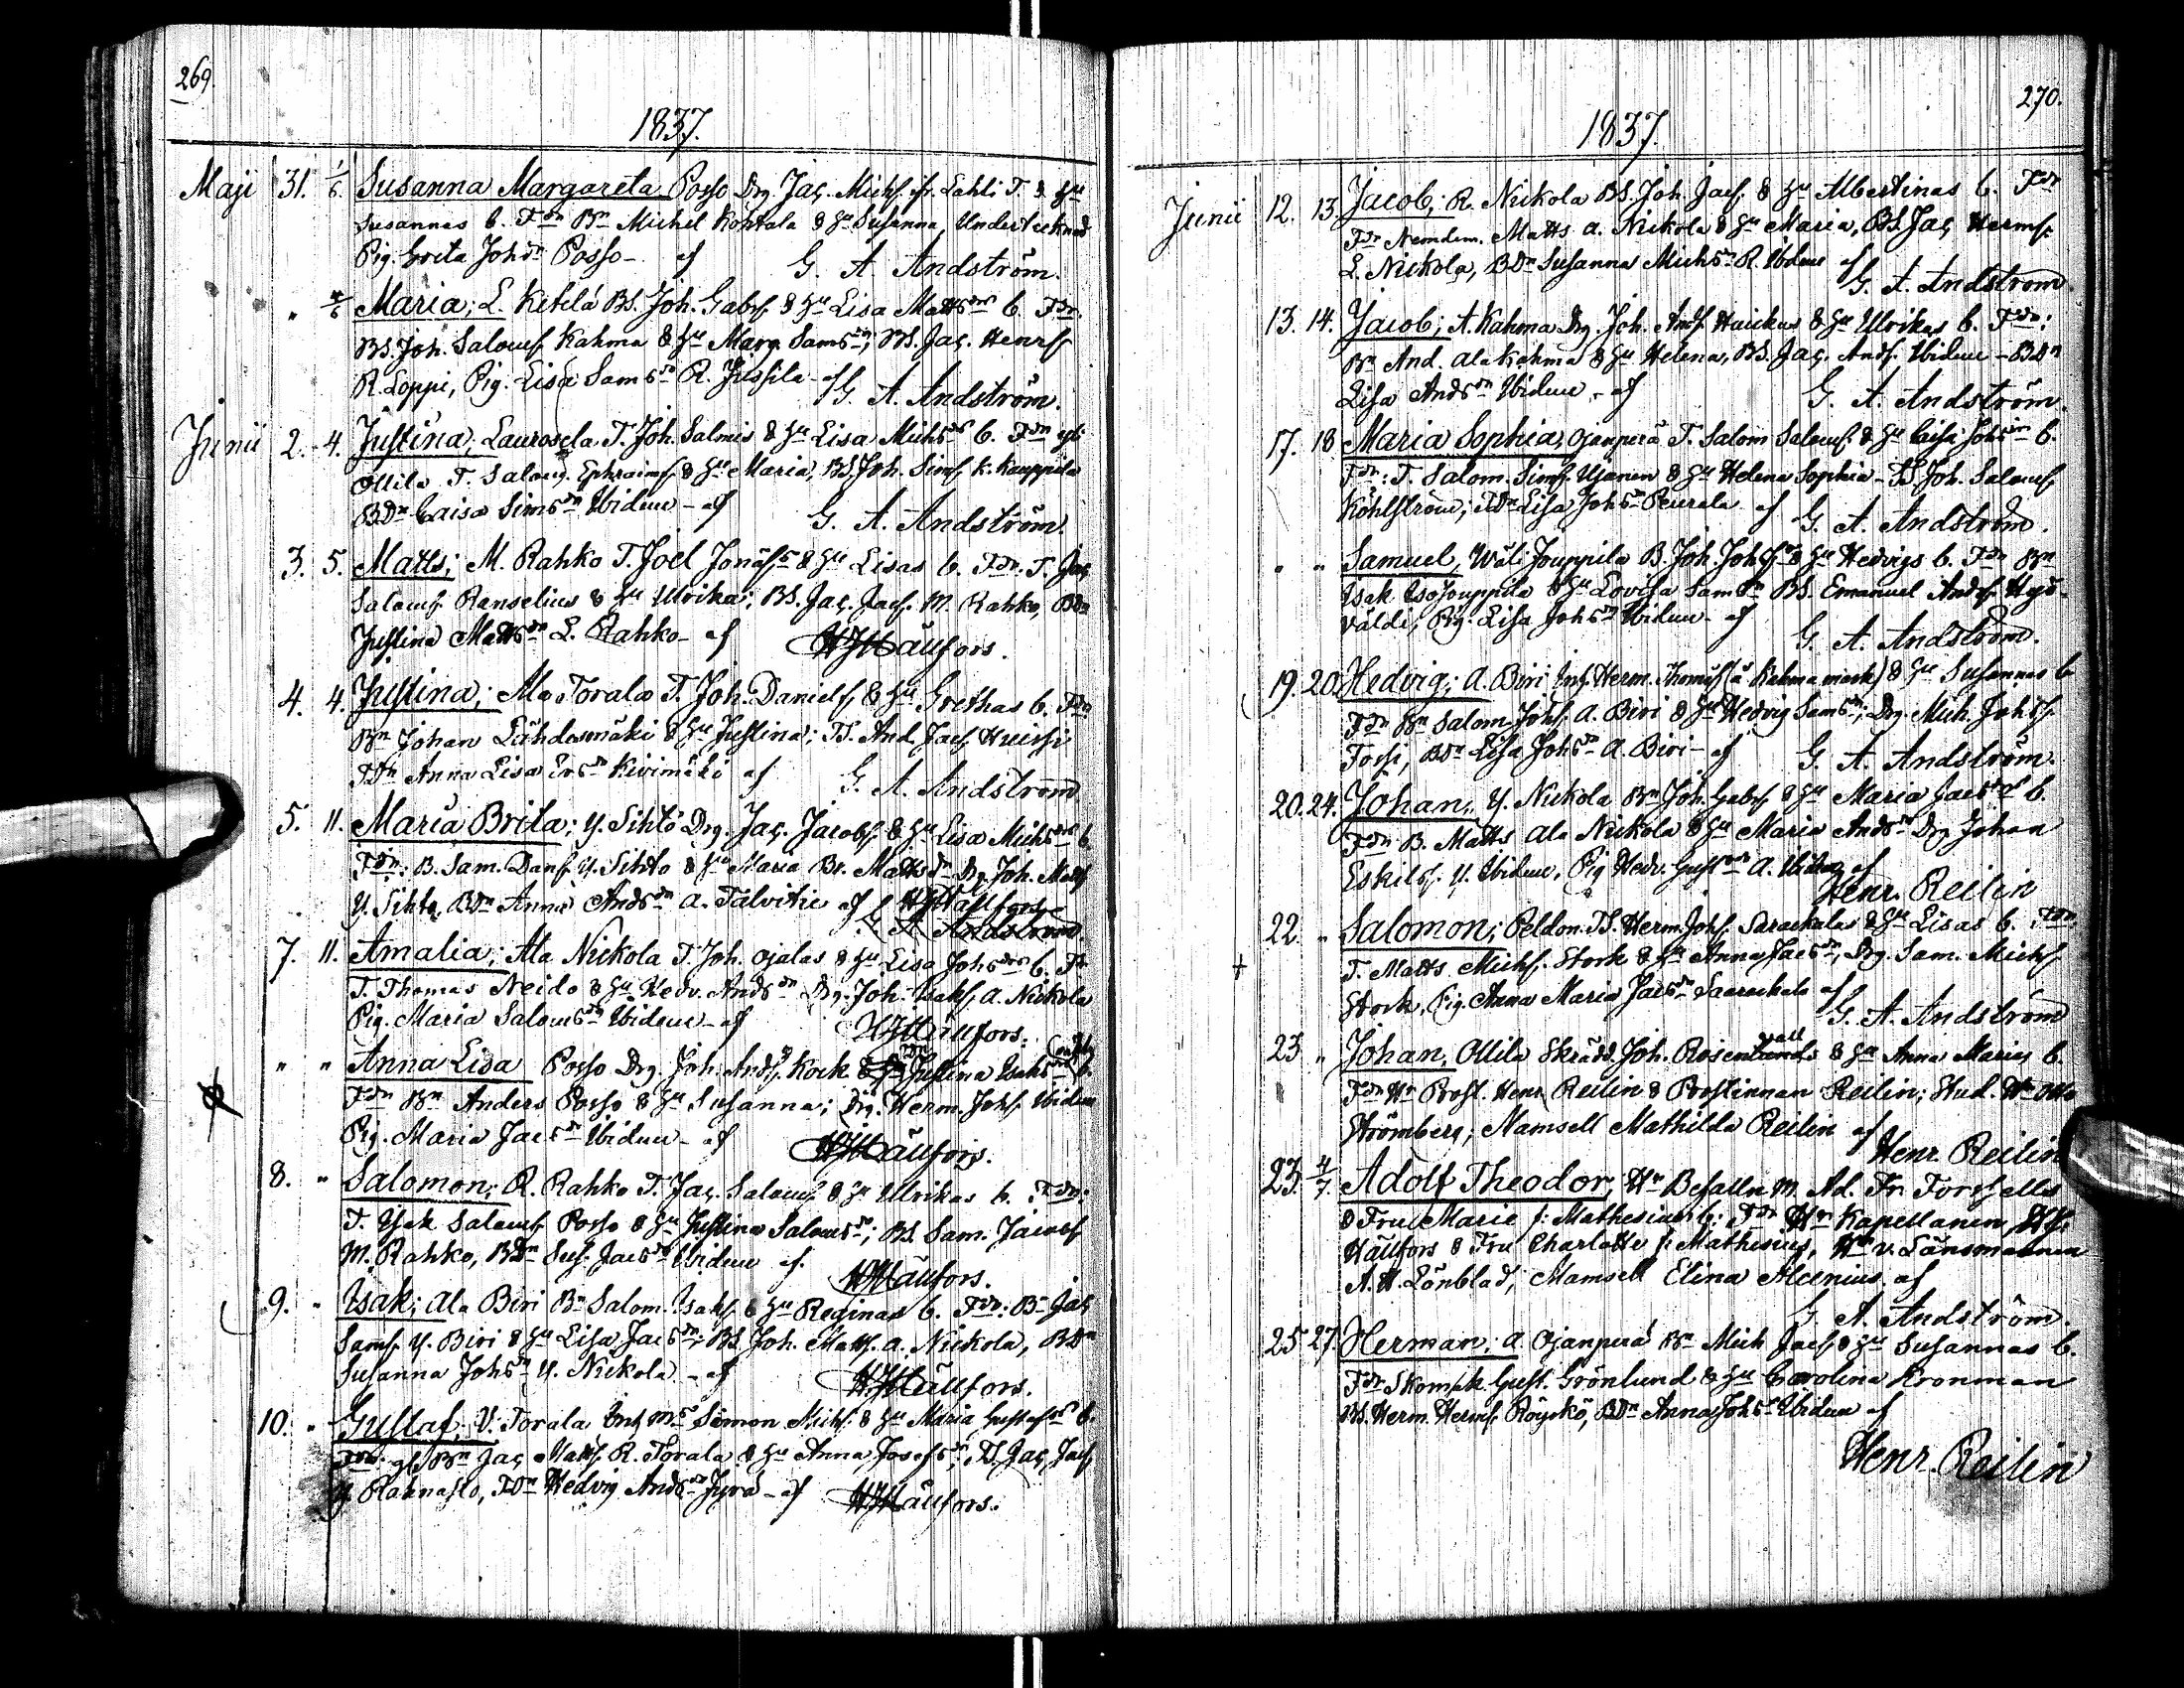 269.
1837.
Maji 31. 1/6. Susanna Margareta Posso Drg. Jac. Michs. fr. Lahti T. & Hu
Susannas b. Fdr Bn Michel Kohtala & Hu Susanna, Undertecknad
Pig. Greta Johdr Posso - af G. A. Andström.
" 4/6 Maria; L. Ketelä BS. Joh. Gabrs. & Hu Lisa Mattsdrs b. Fdr.
BS. Joh. Saloms. Kahma & Hu Marg. Samsdr; BS. Jac. Henrs.
R. Loppi, Pig. Lisa Samsdr R. Jussila - af G. A. Andström.
Junii 2. 4. Justina; Laurosela T. Joh. Salmis & Hu Lisa Michsdrs b. Fdr
Ollila T. Salom. Ephraims. & Hu Maria, BS. Joh. Sims. K. Kauppila
BDr Caisa Simsdr Ibidem - af G. A. Andström.
3. 5. Matts; M. Rahko T. Joel Jonäss & Hu Lisas b. Fdr. T. Jac.
Saloms. Ranselius & Hu Ulrika; BS. Jac. Jacs. M. Rahko, BDr
Justina Mattsdr L. Rahko - af HJHällfors.
4. 4. Justina; Ala Torala T. Joh. Daniels. & Hu Grethas b. Fdr
Bn Johan Lähdesmäki & Hu Justina; TS. And. Jacs. Huissi
TDr Anna Lisa Ersdr Kivimäki af G. A. Andström
5. 11. Maria Brita; Y. Sihto Drg. Jac. Jacobs. & Hu Lisa Michsdrs b.
Fdr: B. Sam. Dans. Y. Sihto & Hu Maria Br. Mattsdr Drg. Joh. Matts.
Y. Sihto, BDr Anna Andsdr A. Talvitie af HJHällfors
G. A. Andström.
7. 11. Amalia; Ala Nickola T. Joh. Ojalas & Hu Lisa Johsdrs b. Fdr
T. Thomas Neido & Hu Hedv. Andsdr Drg. Joh. Isaks. A. Nickola
Pig. Maria Salomsdr Ibidem - af HJHällfors.
" " Anna Lisa Posso Drg. Joh. Ands. Kock & Hu Justina Isaksdrs b.
Fdr Bn Anders Posso & Hu Susanna; Drg. Herm. Johs. Ibidem
Pig. Maria Jacsdr Ibidem - af HJHällfors.
8. " Salomon; R. Rahko T. Jac. Saloms. & Hu Ulrikas b. Fdr:
T. Isak Saloms. Posso & Hu Justina Salomsdr; BS. Sam. Jacobs.
M. Rahko, BDr Sus. Jacsdr Ibidem af. HJHällfors.
9. " Isak; Ala Biri Bn Salom. Isaks. & Hu Reginas b. Fdr: Bn Jac.
Sams. Y. Biri & Hu Lisa Jacsdr; BS. Joh. Matts. A. Nickola, BDr
Susanna Johsdr Y. Nickola - af HJHällfors.
10. " Gustaf; Y. Torala Inh. ms Simon Michs. & Hu Maria Gustafsdrs b.
Fdr. Bn Jac. Matts. R. Torala & Hu Anna Josefsdr; TS. Jac. Jacs.
Y. Rahnasto, TDr Hedvig Andsdr Jyrä - af HJHällfors.
270.
1837.
Junii 12. 13. Jacob; R. Nickola BS. Joh. Jacs. & Hu Albertinas b. Fdr
Fdr Nemdem. Matts A. Nickola & Hu Maria, BS. Jac. Herms.
L. Nickola, BDr Susanna Michsdr R. Ibidem af
G. A. Andström
13. 14. Jacob; A. Kahma Drg. Joh. Ands. Huickus & Hu Ulrikas b. Fdr:
Bn And. Ala Kahma & Hu Helena, BS. Jac. Ands. Ibidem - BDr
Lisa Andsdr Ibidem - af G. A. Andström.
17. 18 Maria Sophia, Ojanperä T. Salom Saloms. & Hu Caisa Johsdrs b.
Fdr: T. Salom. Sims. Ujanen & Hu Helena Sophia - TS. Joh. Saloms.
Kohlström; TDr Lisa Johsdr Peurala af G. A. Andström.
" " Samuel, Wäli Jouppila B. Joh. Johss & Hu Hedvigs b. Fdr Bn
Isak Isojouppila & Hu Lovisa Samsdr BS. Emanuel Ands. Hyövaldi,
Pig. Lisa Johsdr Ibidem - af G. A. Andström.
19. 20. Hedvig; A. Biri Inh. Herm. Thomss. (å Kahma mark) & Hu Susannas b
Fdr Bn Salom Johs. A. Biri & Hu Hedvig Samsdr; Drg. Mich. Johss.
Forsi, BDr Lisa Johsdr A. Biri - af G. A. Andström.
20. 24. Johan; Y. Nickola Bn Joh. Gabrs. & Hu Maria Jacsdrs b.
Fdr B. Matts Ala Nickola & Hu Maria Andsdr Drg Johan
Eskils. Y. Ibidem, Pig Hedv. Gustsdr A. Ibidem af
Henr. Reilin
22 " Salomon; Peldon. TS. Herm. Johs. Saraekalas & Hu Lisas b. Fdr.
T. Matts Michs. Stork & Hu Anna Jacsdr, Drg. Sam. Michs.
Stork, Pig. Anna Maria Jacsdr Saarackala af
G. A. Andström
23 " Johan, Ollila Skrädd. Joh. Rosenlunds vall & Hu Anna Marias b.
Fdr Hr Prost. Henr. Reilin & Prostinnan Reilin; Stud. Hr Otto
Strömberg; Mamsell Mathilda Reilin af
Henr Reilin
23. 4/7. Adolf Theodor, Hr Befalln. M. Ad. Fr. Forssells
& Fru Marie f: Mathesius b: Fdr Hr Kapellanen HJ:
Hällfors & Fru Charlotte f: Mathesius, Hr v. Länsmannen
A. H. Lönblad; Mamsell Elina Alcenius. af
G. A. Andström.
25 27. Herman; A Ojanperä Bn Mich Jacs. & Hu Susannas b.
Fdr Skomak. Gust. Grönlund & Hu Carolina Kronman
BS. Herm. Herms. Röyskö, BDr Anna Johsdr Ibidem af
Henr. Reilin